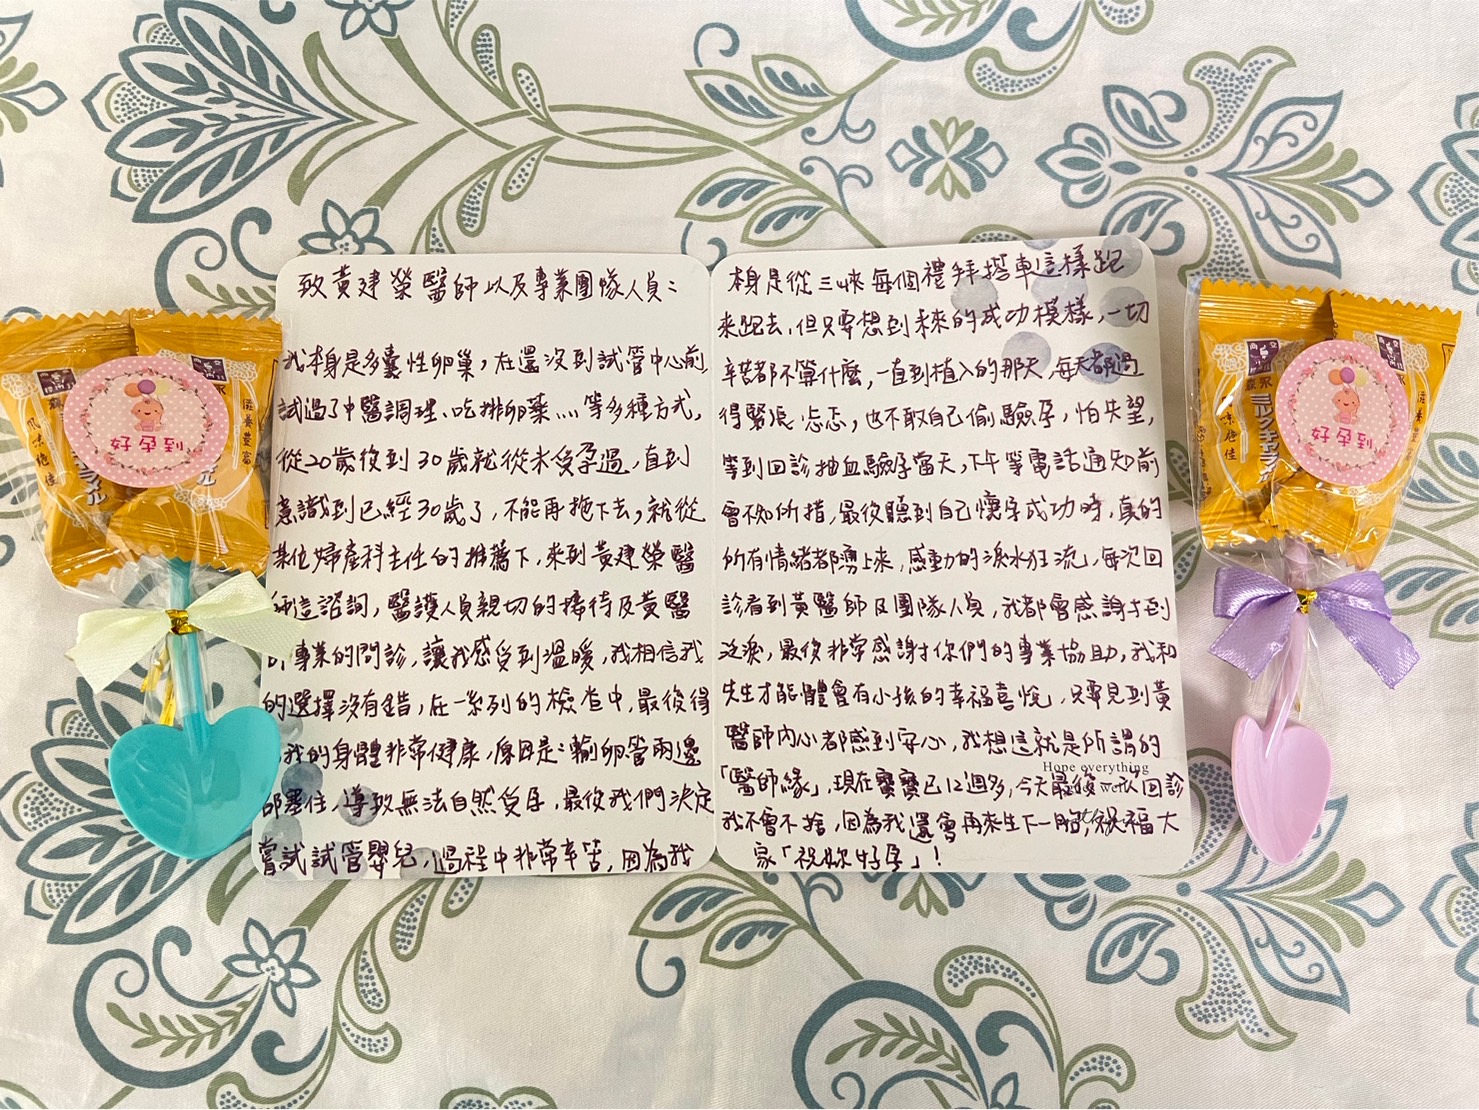 致黃建榮醫師以及專業團隊人員：
我本身是多囊性卵巢，在還沒到試管中心前，
試過了中醫調理、吃排卵藥...等多種方式，
從20歲後到30歲就從未受孕過，直到
意識到已經30歲了，不能再拖下去，就從
某位婦產科主任的推薦下，來到黃建榮醫
師這諮詢，醫護人員親切的接待及黃醫
師專業的問診，讓我感受到溫暖，我相信我
的選擇沒有錯，在一系列的檢查中，最後得
我的身體非常健康，原因是：輸卵管兩邊
都塞住，導致無法自然受孕，最後我們決定
嘗試試管嬰兒，過程中非常辛苦，因為我
本身是從三峽每個禮拜搭車這樣跑
來跑去，但只要想到未來的成功模樣，一切
辛苦都不算什麼，一直到植入的那天，每天都過
得緊張忐忑，也不敢自己偷驗孕，怕失望，
等到回診抽血驗孕當天，下午等電話通知前
會不知所措，最後聽到自己懷孕成功時，真的
所有情緒都湧上來，感動的淚水狂流，每次回
診看到黃醫師及團隊人員，我都會感謝到
泛淚，最後非常感謝你們的專業協助，我和
先生才能體會有小孩的幸福喜悅，只要見到黃
醫師內心都感到安心，我想這就是所謂的
Hope everything
「醫師緣」，現在寶寶已12週多，今天最後一次回診
我不會不捨，因為我還會再來生下一胎，祝福大
家「祝妳好孕」！
好孕到
好孕到